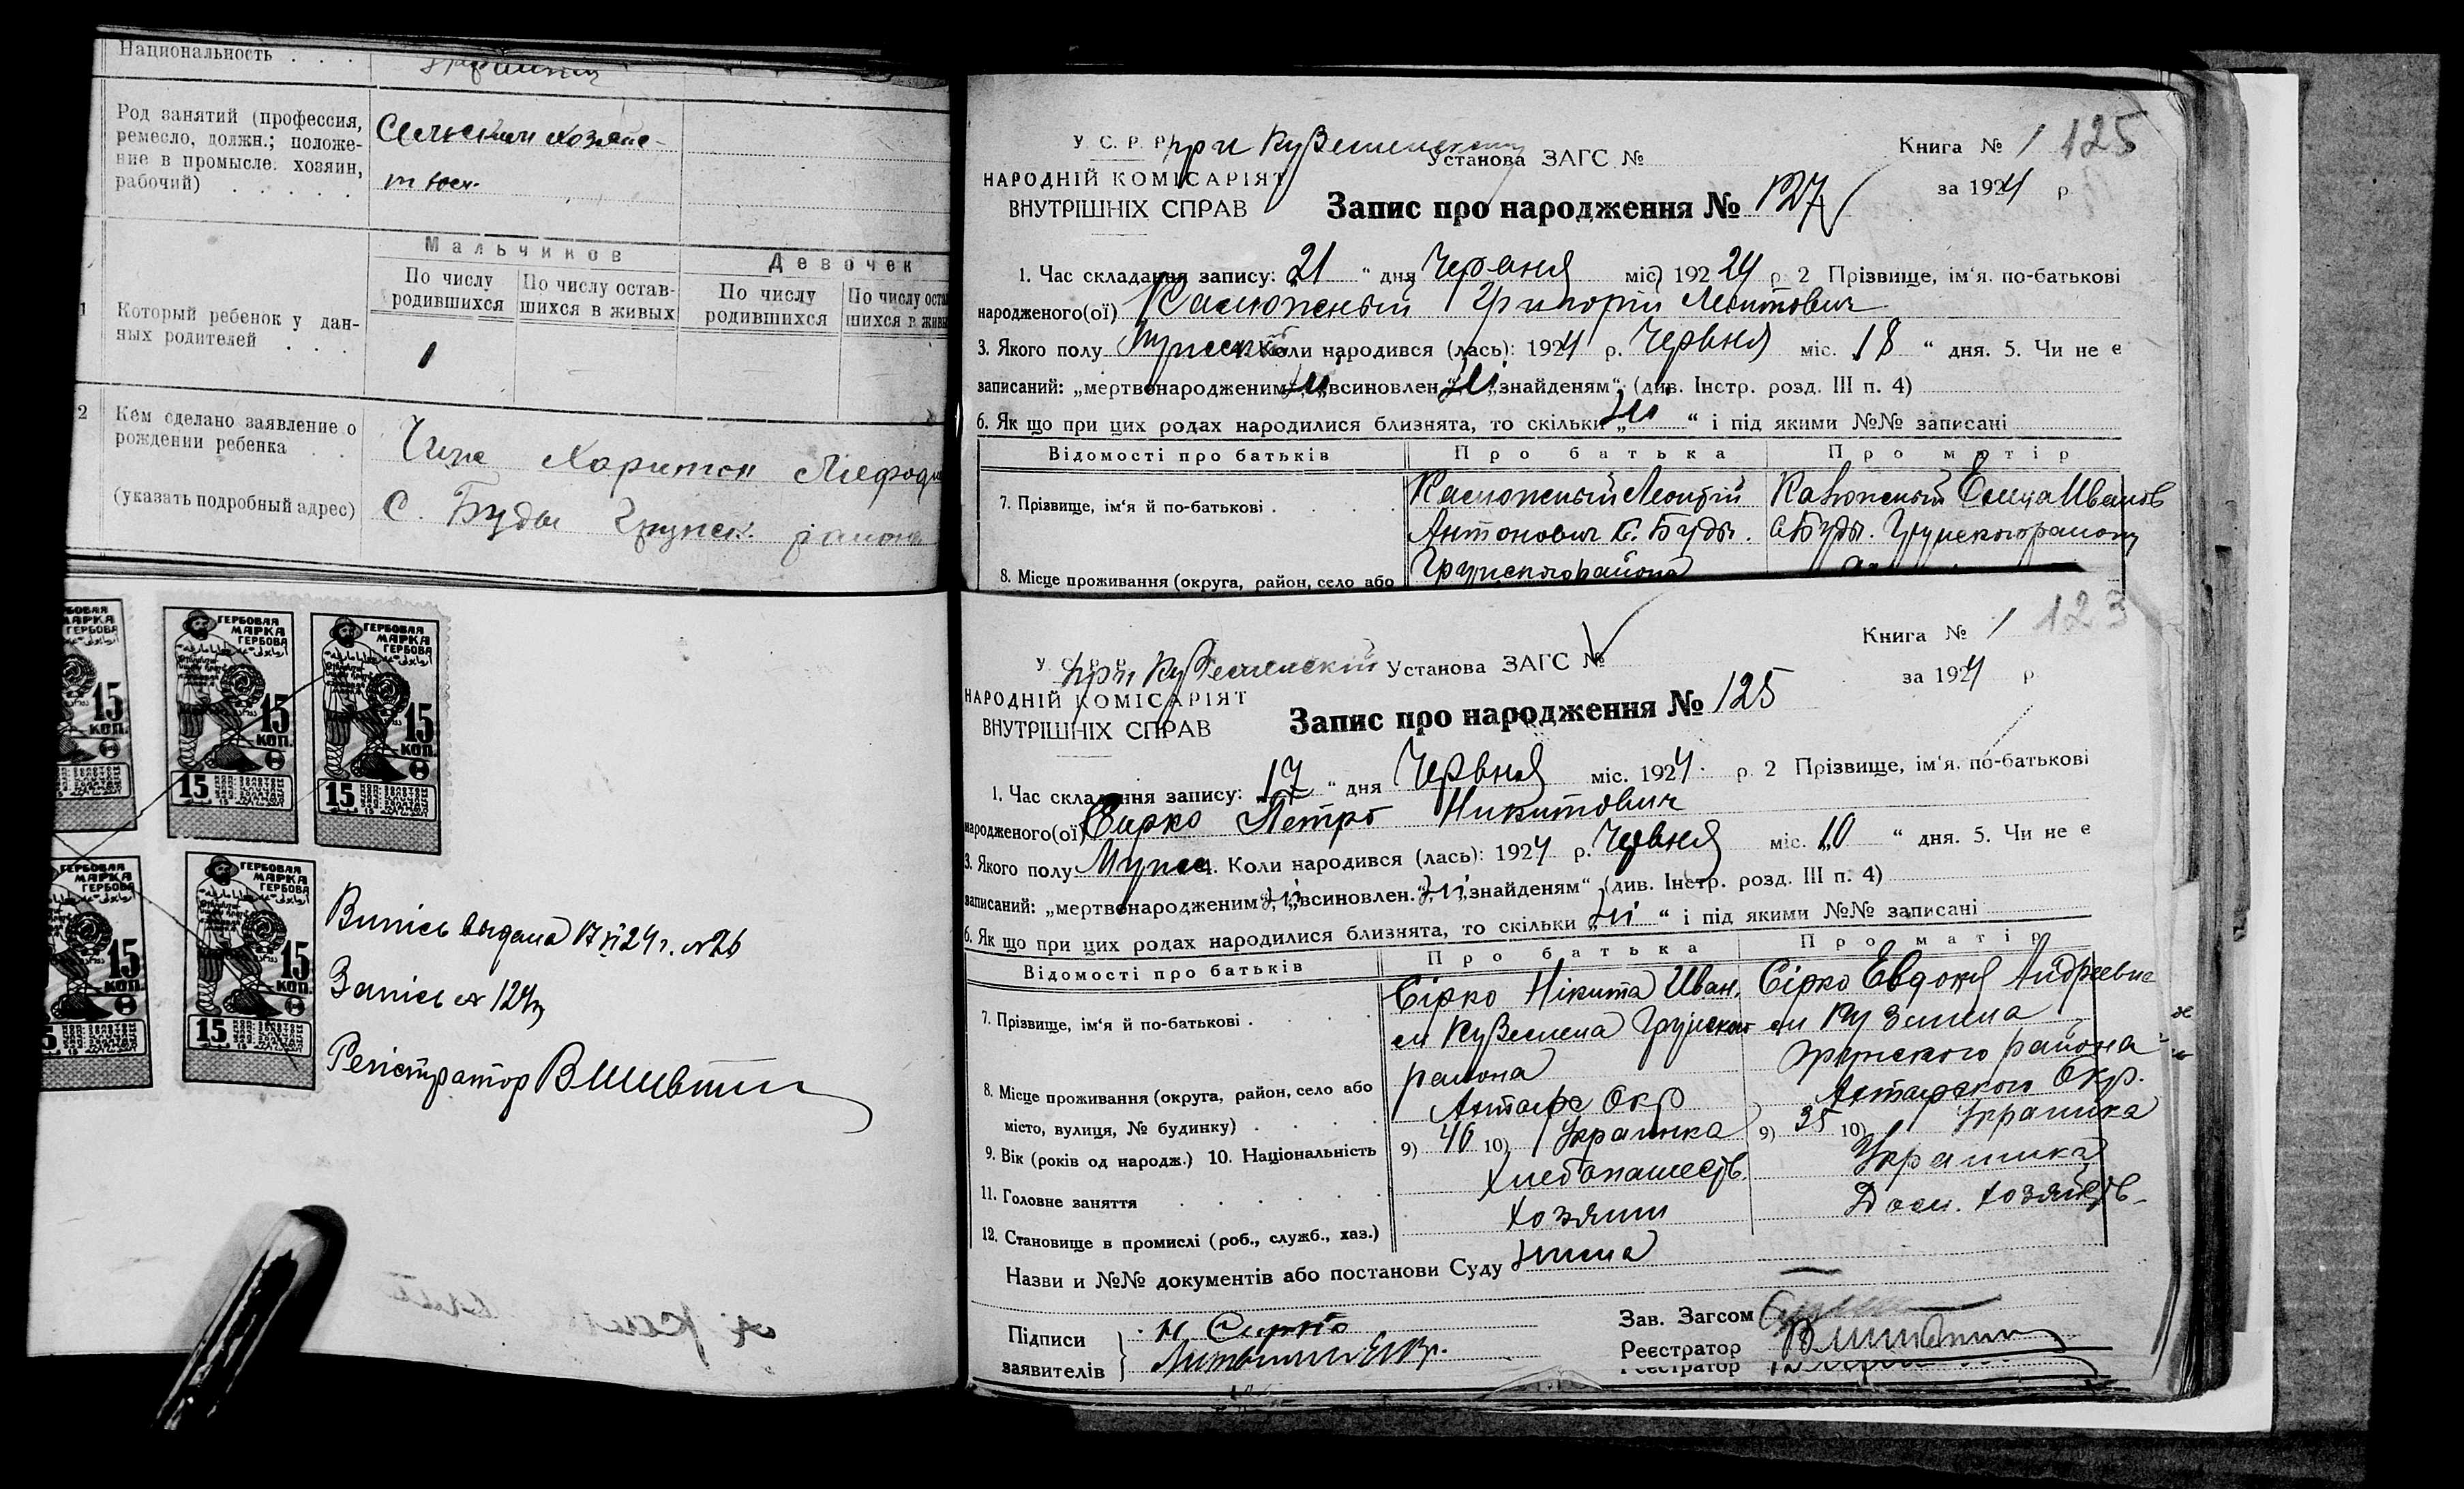 Национальность . . .
Род занятий (профессия,
ремесло, должн.; положе-
ние в промысле. хозяин,
рабочий) . . . . .
Сельским хозяйс-
твом
Мальчиков
Девочек
По числу
родившихся
По числу остав-
шихся в живых
По числу
родившихся
По числу
шихся в
1 Который ребенок у дан-
ных родителей . . .
1
2 Кем сделано заявление о
рождении ребенка . .
(указать подробный адрес)
Харитон
С. Буды Грунск. района
ГЕРБОВАЯ
МАРКА
ГЕРБОВА
15
КОП.
15
ГЕРБОВАЯ
МАРКА
ГЕРБОВА
15
КОП.
15
ГЕРБОВАЯ
МАРКА
ГЕРБОВА
15
КОП.
15
Випись выдана 17 VI 24 г. № 26
Запись № 124
Регістратор
125
У. С. Р. Р.
при
Установа ЗАГС №
Книга № 1
НАРОДНІЙ КОМІСАРІЯТ
ВНУТРІШНІХ СПРАВ
за 1924 р.
Запис про народження № 127
1. Час складання запису: 21 “ дня Червня міс. 192 24 р. 2 Прізвище, ім‘я. по-батькові
народженого(ої) Калюжный Григорій Леонтович
3. Якого полу Мужеск. 4. Коли народився (лась): 1924 р. Червня міс. 18 “ дня. 5. Чи не є
записаний: „мертвонародженим“, Ні „всиновлен.“, Ні „знайденям“ (див. Інстр. розд. III п. 4)
6. Як що при цих родах народилися близнята, то скільки „ Ні “ і під якими №№ записані
Відомості про батьків
Про батька
Про матір
7. Прізвище, ім‘я й по-батькові . . . .
Калюжный Леонтій
Антонович с. Буды.
Грунского района
Калюжный Иванов
с Буды. Грунского району
8. Місце проживання (округа, район, село або
123
У. С. Р. Р.
при
Установа ЗАГС №
Книга № 1
НАРОДНІЙ КОМІСАРІЯТ
ВНУТРІШНІХ СПРАВ
за 1924 р.
Запис про народження № 125
1. Час складання запису: 17 “ дня Червня міс. 1924. р. 2 Прізвище, ім‘я. по-батькові
народженого(ої) Сирко Петро Никитович
3. Якого полу Мужес 4. Коли народився (лась): 1924 р. Червня міс. 10 “ дня. 5. Чи не є
записаний: „мертвонародженим“, Ні „всиновлен.“, Ні „знайденям“ (див. Інстр. розд. III п. 4)
6. Як що при цих родах народилися близнята, то скільки „ Ні “ і під якими №№ записані
Відомості про батьків
Про батька
Про матір
7. Прізвище, ім‘я й по-батькові . . . .
Сірко Нікита Иван.
Грунског
района
Ахтырс Окр
Сірко Евдокія Андреевна
Грунского района
Ахтырского Окр.
8. Місце проживання (округа, район, село або
місто, вулиця, № будинку) . . . .
9. Вік (років од народж.) 10. Національність
9) 40 10) Украинка
9) 35 10) Украинка
Украинка
11. Головне заняття . . . . .
Хлебопашеств.
Дом. хозяйств-
12. Становище в промислі (роб., служб., хаз.)
Хозяин
Назви и №№ документів або постанови Суду
Підписи
заявителів
Н Сирко
Зав. Загсом
Реєстратор
Реєстратор